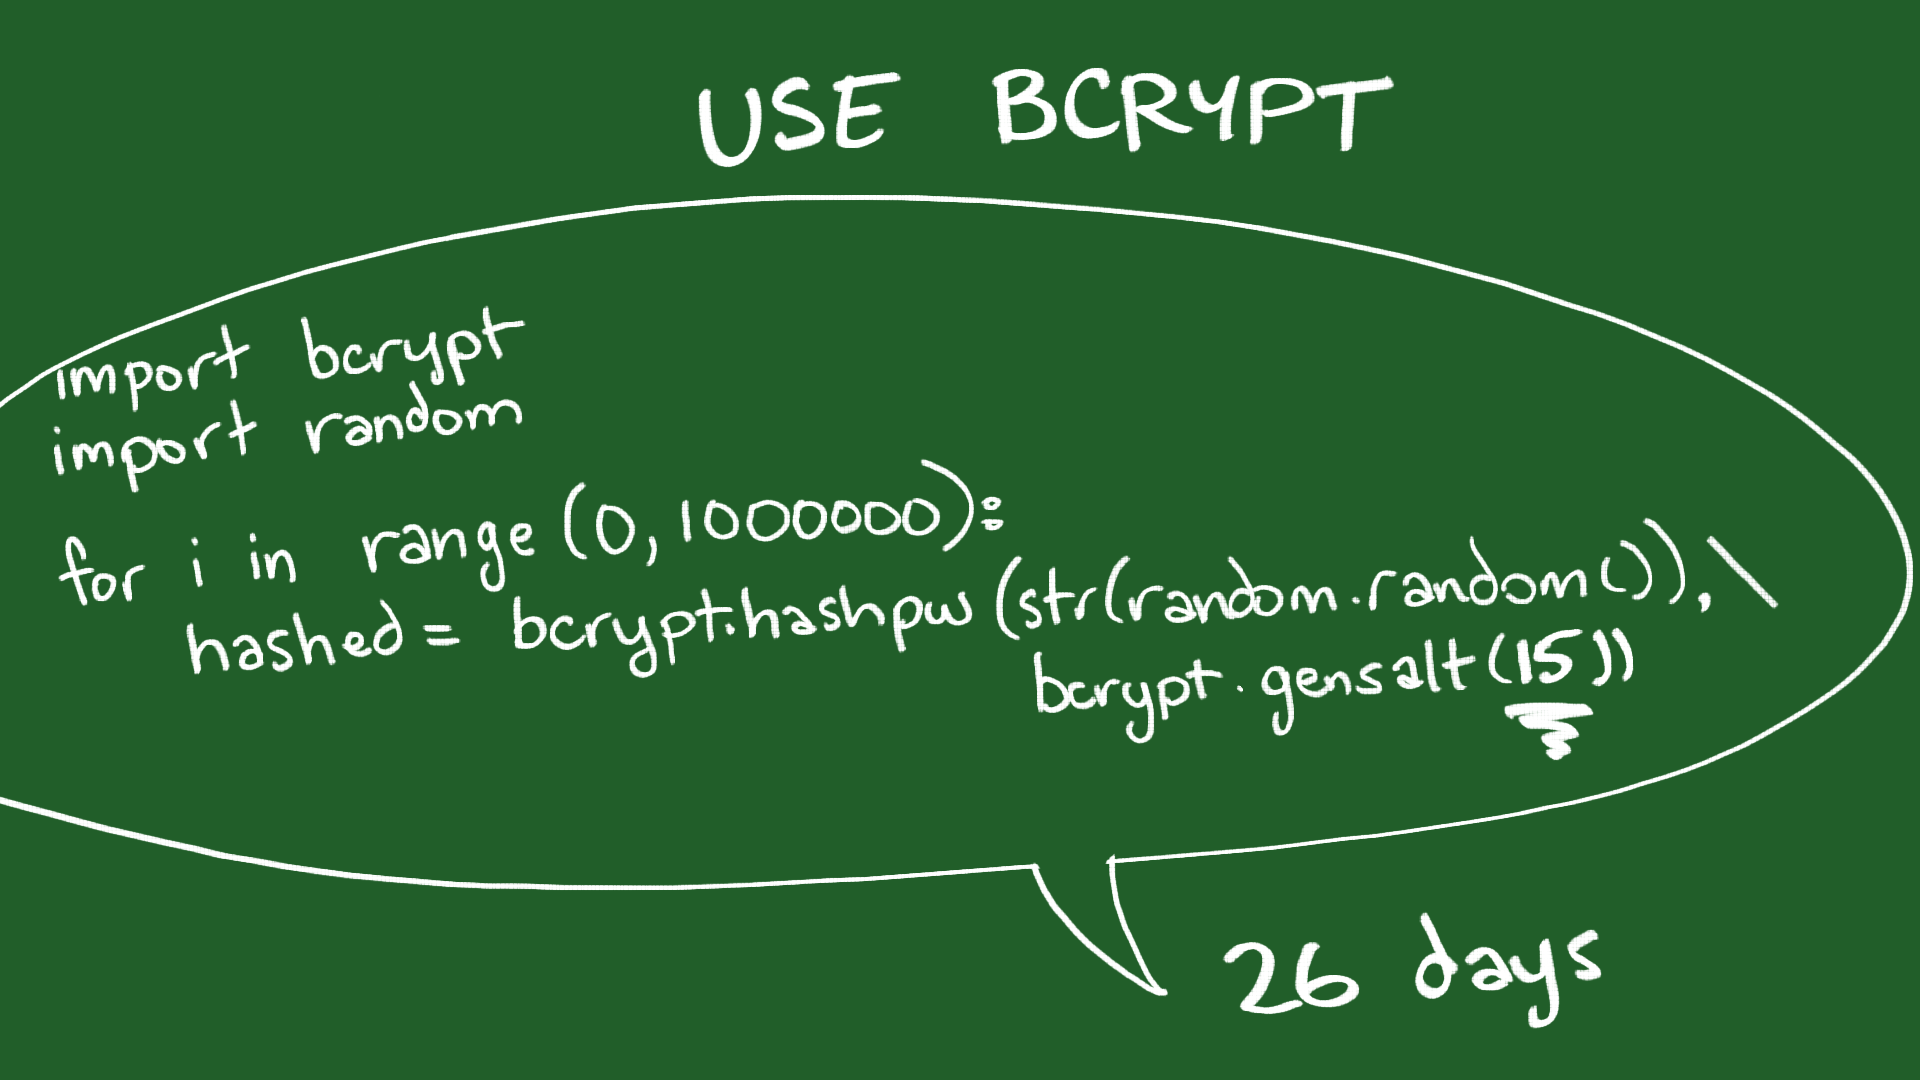 USE BCRYPT
import bcrypt
import random
for i in range (0, 1000000):
hashed = bcrypt.hashpw (str(random.random()), \
bcrypt.gensalt(15))
26 days